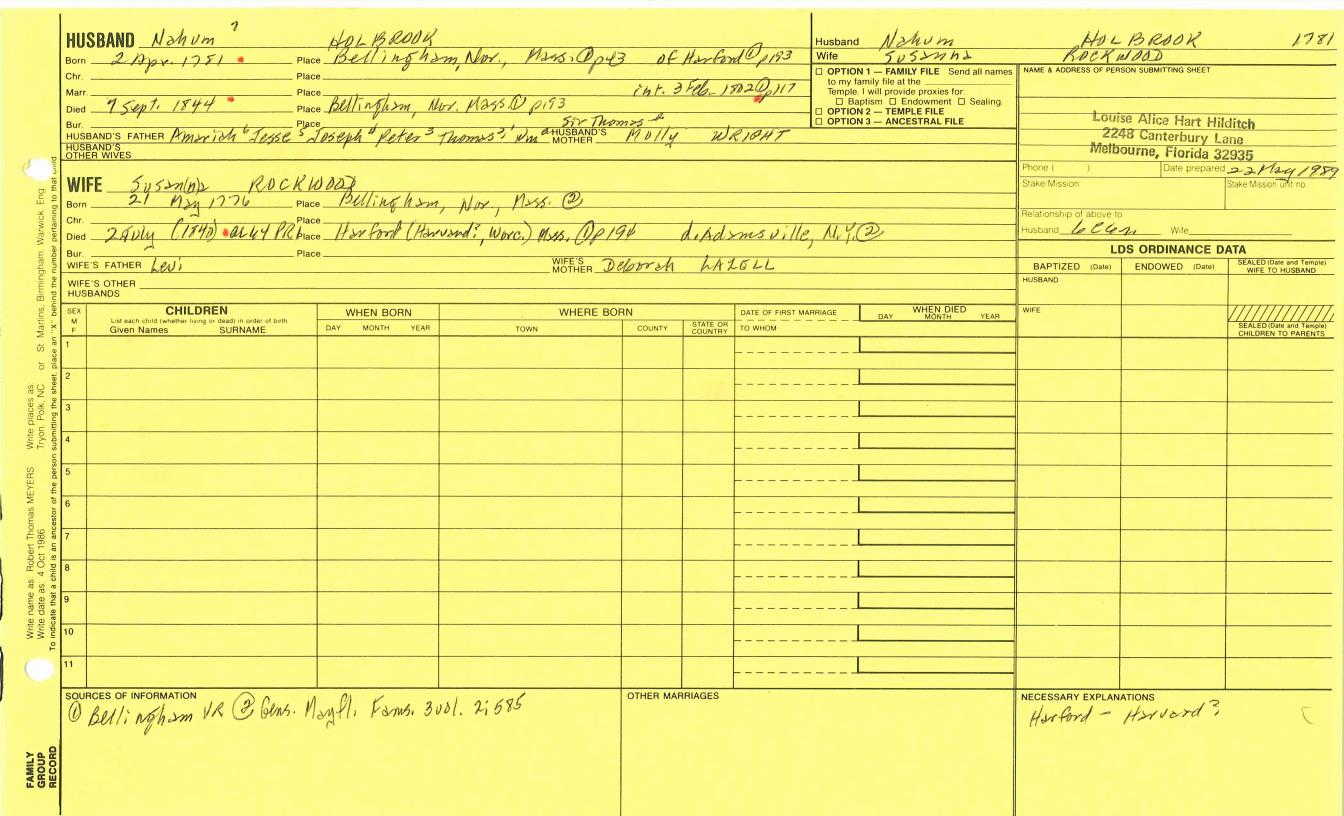 HUSBAND Nahum 7 HOLBROOK
Born 2 Apr. 1781 Place Bellingham, Nor., Mass. ① p43 of Harford ① p193
Chr. Place
Marr. Place int. 3 Feb. 1802 ① p117
Died 9 Sept. 1844 Place Bellingham, Nor. Mass ① p193
Bur. Place Sir Thomas
HUSBAND'S FATHER Amariah 6 Jesse 5 Joseph 4 Peter 3 Thomas 2, 1 Wm HUSBAND'S MOTHER Molly WRIGHT
HUSBAND'S OTHER WIVES
WIFE Susan(n)a ROCKWOOD
Born 21 May 1776 Place Bellingham, Nor., Mass. ②
Chr. Place
Died 2 July (1840) ae 64 PR1 Place Harford (Harvard?, Worc.) Mass. ① p194 d. Adamsville, N.Y. ②
Bur. Place
WIFE'S FATHER Levi WIFE'S MOTHER Deborah LAZELL
WIFE'S OTHER HUSBANDS
Husband Nahum HOLBROOK 1781
Wife Susanna ROCKWOOD
☐ OPTION 1 — FAMILY FILE Send all names
to my family file at the
Temple. I will provide proxies for:
☐ Baptism ☐ Endowment ☐ Sealing
☐ OPTION 2 — TEMPLE FILE
☐ OPTION 3 — ANCESTRAL FILE
NAME & ADDRESS OF PERSON SUBMITTING SHEET
Louise Alice Hart Hilditch
2248 Canterbury Lane
Melbourne, Florida 32935
Phone ( ) Date prepared 22 May 1989
Stake Mission Stake Mission unit no.
Relationship of above to
Husband 6c6r Wife
LDS ORDINANCE DATA
BAPTIZED (Date) ENDOWED (Date) SEALED (Date and Temple) WIFE TO HUSBAND
HUSBAND
WIFE
SEALED (Date and Temple) CHILDREN TO PARENTS
SEX M F
CHILDREN
List each child (whether living or dead) in order of birth
Given Names SURNAME
WHEN BORN
DAY MONTH YEAR
WHERE BORN
TOWN COUNTY STATE OR COUNTRY
DATE OF FIRST MARRIAGE
TO WHOM
WHEN DIED
DAY MONTH YEAR
1
2
3
4
5
6
7
8
9
10
11
SOURCES OF INFORMATION
① Bellingham VR ② Gens. Mayfl. Fams. 3 vol. 2:585
OTHER MARRIAGES
NECESSARY EXPLANATIONS
Harford - Harvard?
Write name as Robert Thomas MEYERS Write places as Tryon, Polk, NC or St Martins, Birmingham, Warwick, Eng
Write date as 4 Oct 1986
To indicate that a child is an ancestor of the person submitting the sheet, place an "X" behind the number pertaining to that child
FAMILY GROUP RECORD